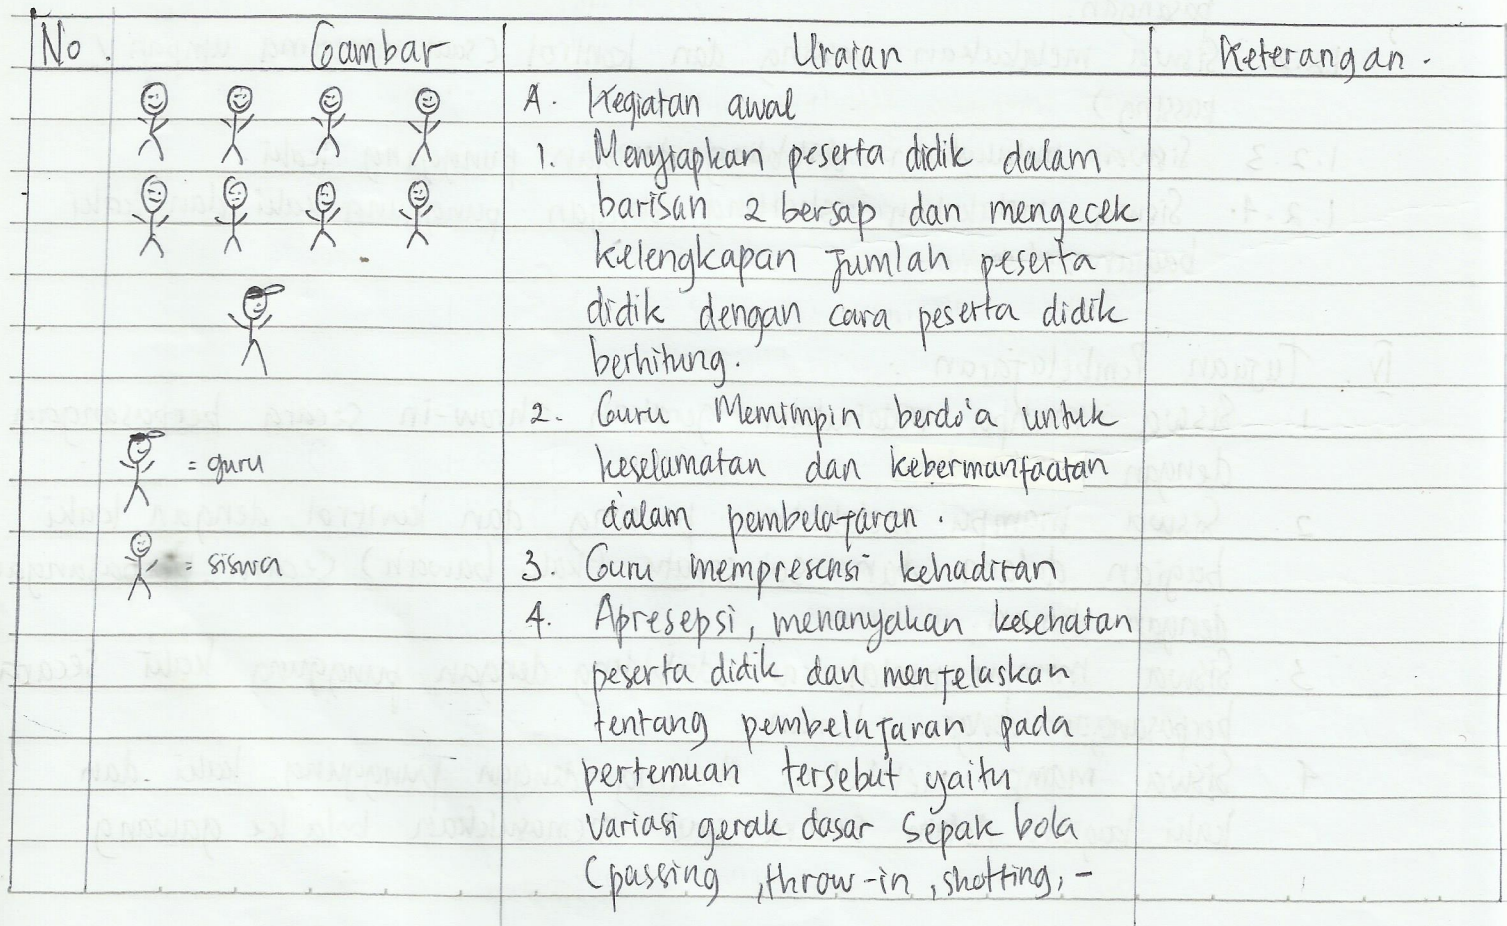 No. Gambar Uraian Keterangan.
A. Kegiatan awal
1. Menyiapkan peserta didik dalam
barisan 2 bersap dan mengecek
kelengkapan jumlah peserta
didik dengan cara peserta didik
berhitung.
2. Guru Memimpin berdo'a untuk
keselamatan dan kebermanfaatan
dalam pembelajaran.
3. Guru mempresensi kehadiran
4. Apresepsi, menanyakan kesehatan
peserta didik dan menjelaskan
tentang pembelajaran pada
pertemuan tersebut yaitu
variasi gerak dasar sepak bola
(passing, throw-in, shotting, -
= guru
= siswa